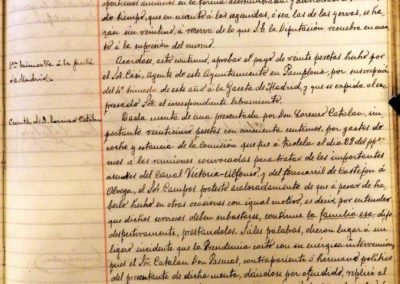 do tiempo, que en cuanto á las segundas, ó sea las de yervas, se hagan
sin veintena, á reserva de lo que S.E. la Diputación resuelva en cuanto
á la supresion del
1er trimestre á la Gaceta de Madrid.
Acordose, acto continuo, aprobar el pago de veinte pesetas hecho por
el Sr. Cori, Agente de este Ayuntamiento en Pamplona, por suscripcion
del 4º trimestre de este año á la Gaceta de Madrid, y que se expida al expresado
Sr. el correspondiente libramiento.
Cuenta de D. Lorenzo Catalan
Dada cuenta de una presentada por Don Lorenzo Catalan, importante
veintiseis pesetas con cincuenta centimos, por gastos de
coche y estancia de la Comision que fué á Tudela el dia 29 del
mes á las reuniones convocadas para tratar de los importantes
asuntos del Canal Victoria-Alfonso, y del ferrocarril de Castejon á
Olvega, el Sr. Campos protestó acaloradamente de que á pesar de haberlo
hecho en otras ocasiones con igual motivo, es decir, por entender
que dichos servicios deben subastarse, continue la familia esa, dijo
despectivamente, prestandolos. Tales palabras, dieron lugar á un
ligero incidente que la Presidencia cortó con su energica intervencion,
pues el Sr. Catalan Don Pascual, contraparente ó hermano político
del presentante de dicha cuenta, dándose por ofendido, replicó al